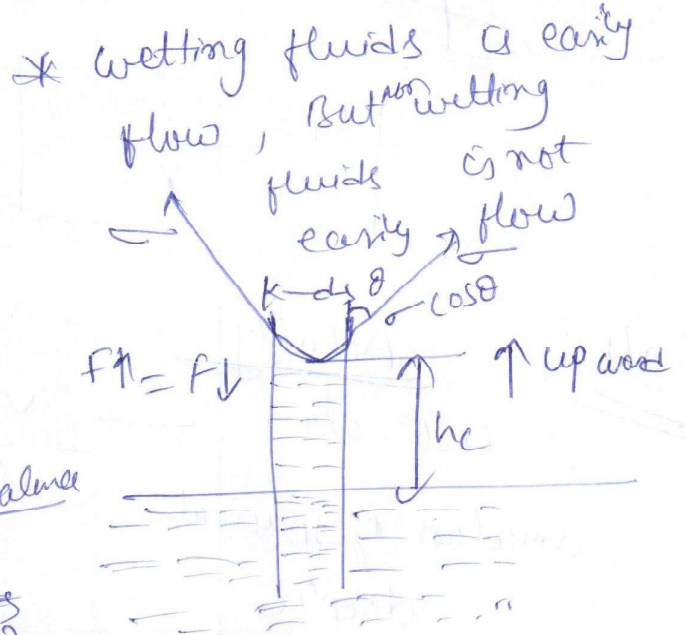 * wetting fluids is easily
flow, But non wetting
fluids is not
easily flow
σ
σ
ds θ
σ cosθ
F↑ = F↓
↑ upword
hc